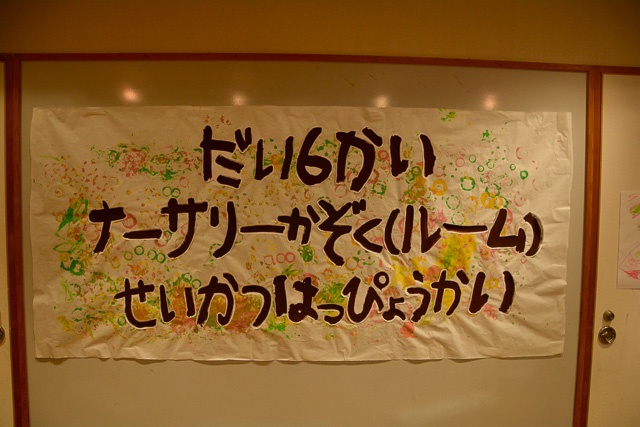 だい6かい
ナーサリーかぞく(ルーム)
せいかつはっぴょうかい